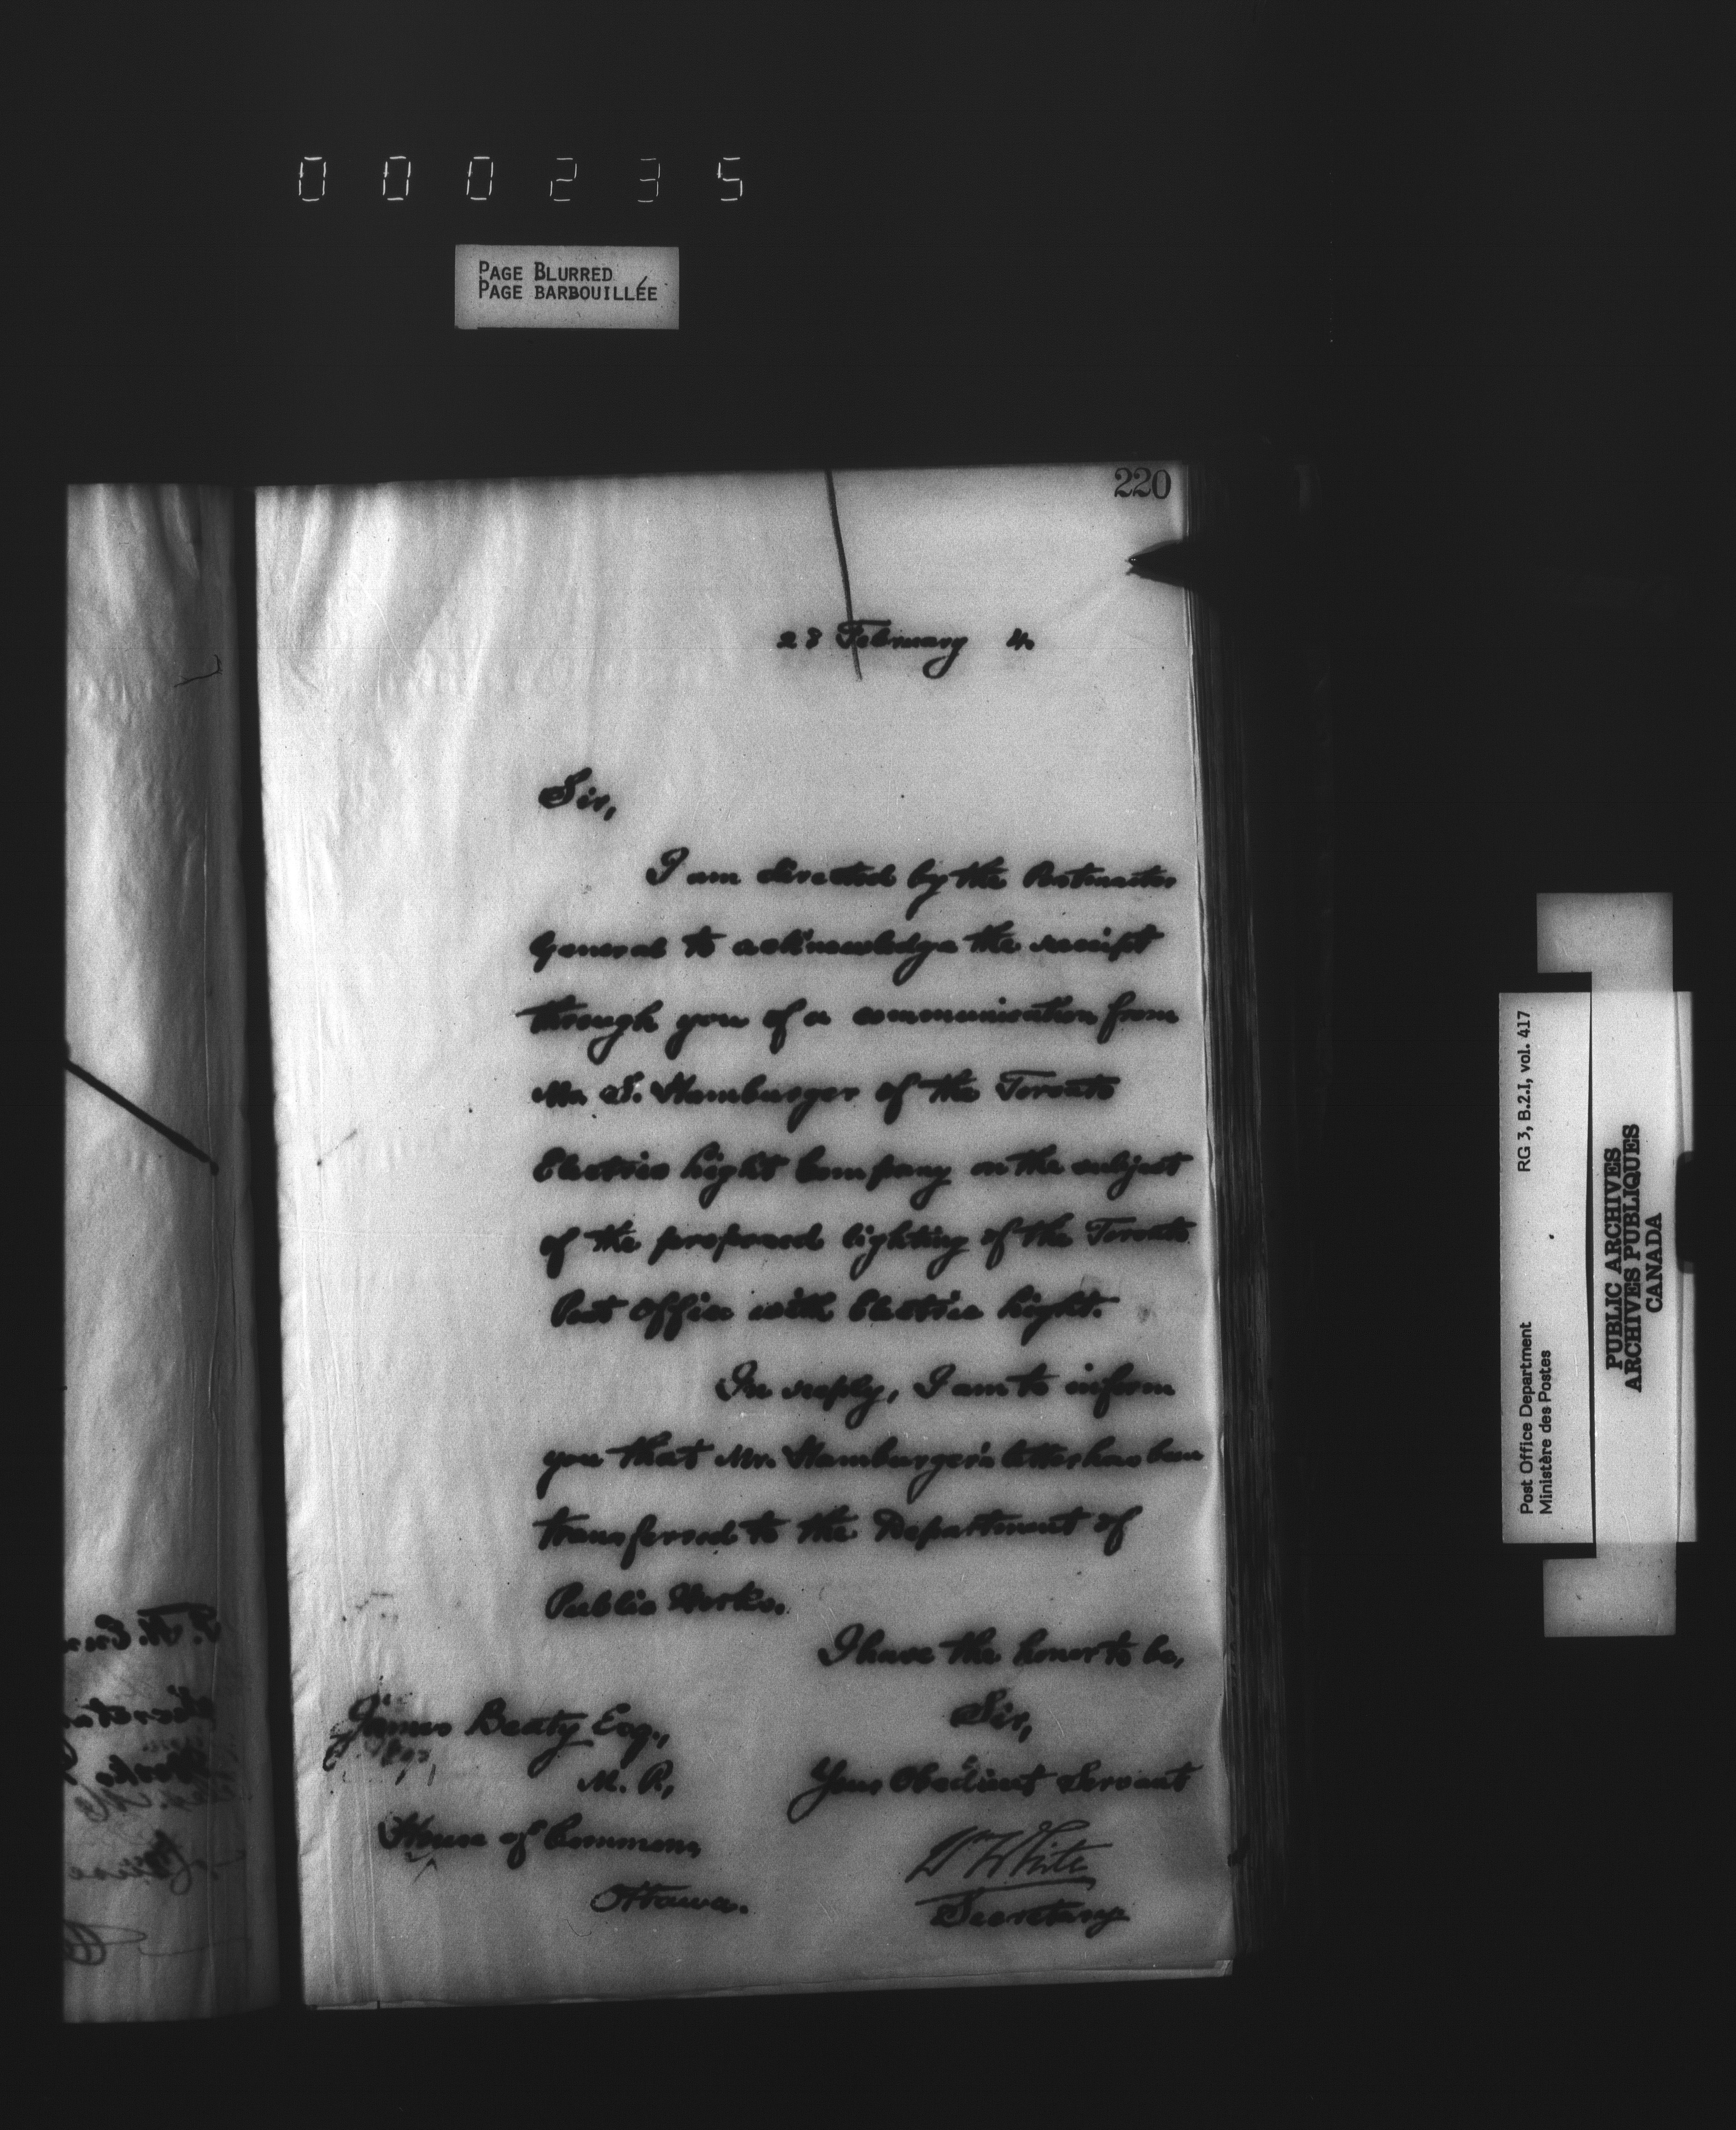 000235
PAGE BLURRED
PAGE BARBOUILLÉE
220
23 February 4.
Sir,
I am directed by the Postmaster
General to acknowledge the receipt
through you of a communication from
Mr. S. Hamburger of the Toronto
Electric Light Company on the subject
of the proposed lighting of the Toronto
Post Office with Electric Light.
In reply, I am to inform
you that Mr. Hamburger's letter has been
transferred to the Department of
Public Works.
I have the honor to be,
Sir,
Your Obedient Servant
W White
Secretary
James Beaty Esq.,
M. P.,
House of Commons,
Ottawa.
Post Office Department RG 3, B.2.I, vol. 417
Ministère des Postes
PUBLIC ARCHIVES
ARCHIVES PUBLIQUES
CANADA